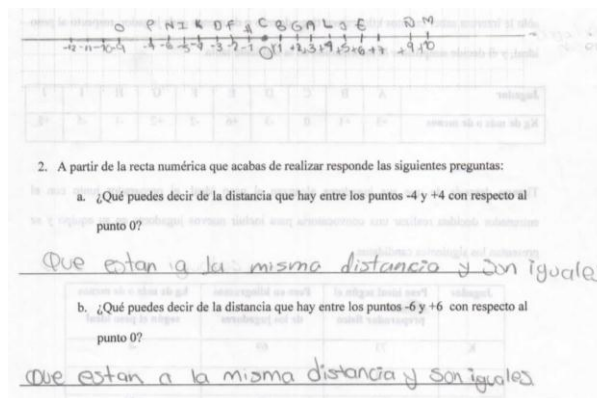 O P N I K D F A C B G A L J E D M
-12 -11 -10 -9 -5 -4 -3 -2 -1 0 +1 +2 +3 +4 +5 +6 +7 +9 +10
2. A partir de la recta numérica que acabas de realizar responde las siguientes preguntas:
a. ¿Qué puedes decir de la distancia que hay entre los puntos -4 y +4 con respecto al
punto 0?
Que estan a la misma distancia y son iguale
b. ¿Qué puedes decir de la distancia que hay entre los puntos -6 y +6 con respecto al
punto 0?
Que estan a la misma distancia y son iguales.